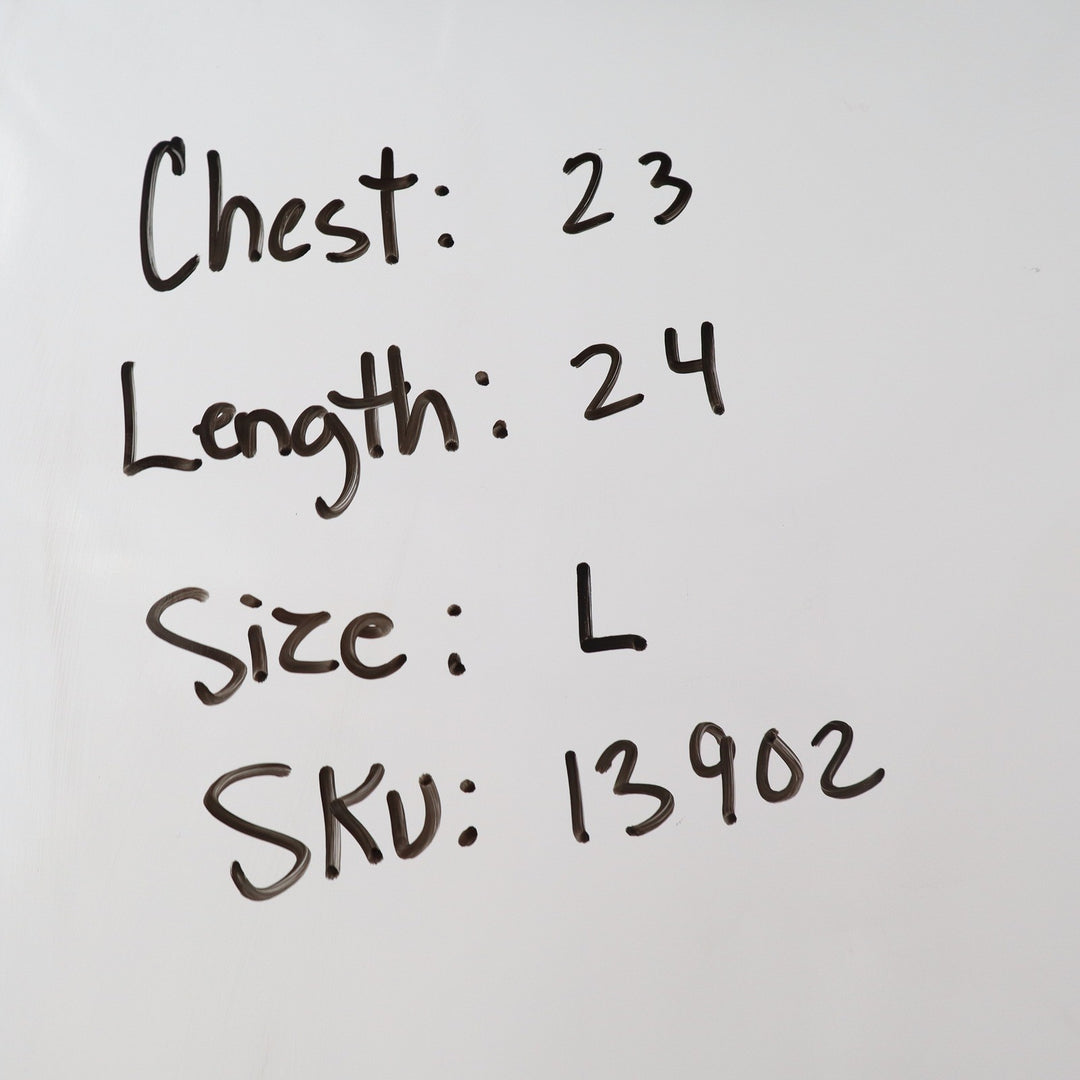 Chest: 23
Length: 24
Size: L
SKU: 13902